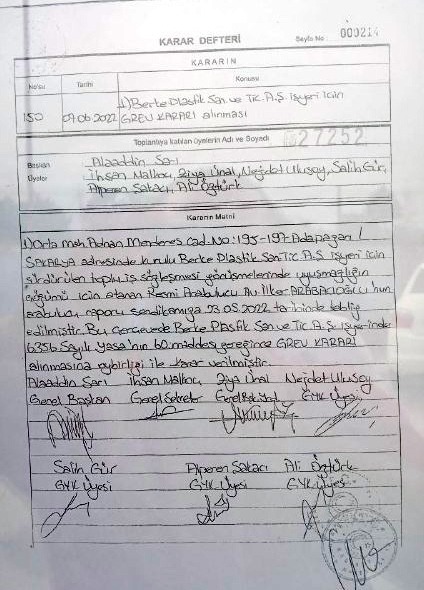 KARAR DEFTERİ
Sayfa No 000214
KARARIN
No'su Tarihi Konusu
150 07.06.2022 1) Berke Plastik San. ve Tic. A.Ş. işyeri için
GREV KARARI alınması
Toplantıya katılan üyelerin Adı ve Soyadı 27252
Başkan Alaaddin Sarı
Üyeler İhsan Malkoç, Ziya Ünal, Nejdet Ulusoy, Salih Gür,
Alperen Sakacı, Ali Öztürk
Kararın Metni
1) Orta mah. Adnan Menderes Cad. No: 195-197 Adapazarı /
SAKARYA adresinde kurulu Berke Plastik San. Tic. A.Ş. işyeri için
sürdürülen toplu iş sözleşmesi görüşmelerinde uyuşmazlığın
çözümü için atanan Resmi Arabulucu Av. İlker ARABACIOĞLU'nun
arabulucu raporu sendikamıza 23.05.2022 tarihinde tebliğ
edilmiştir. Bu çerçevede Berke Plastik San ve Tic. A.Ş. işyerinde
6356 Sayılı Yasa'nın 60. maddesi gereğince GREV KARARI
alınmasına oybirliği ile karar verilmiştir.
Alaaddin Sarı İhsan Malkoç Ziya Ünal Nejdet Ulusoy
Genel Başkan Genel Sekreter GYK Üyesi
Salih Gür Alperen Sakacı Ali Öztürk
GYK Üyesi GYK Üyesi GYK Üyesi